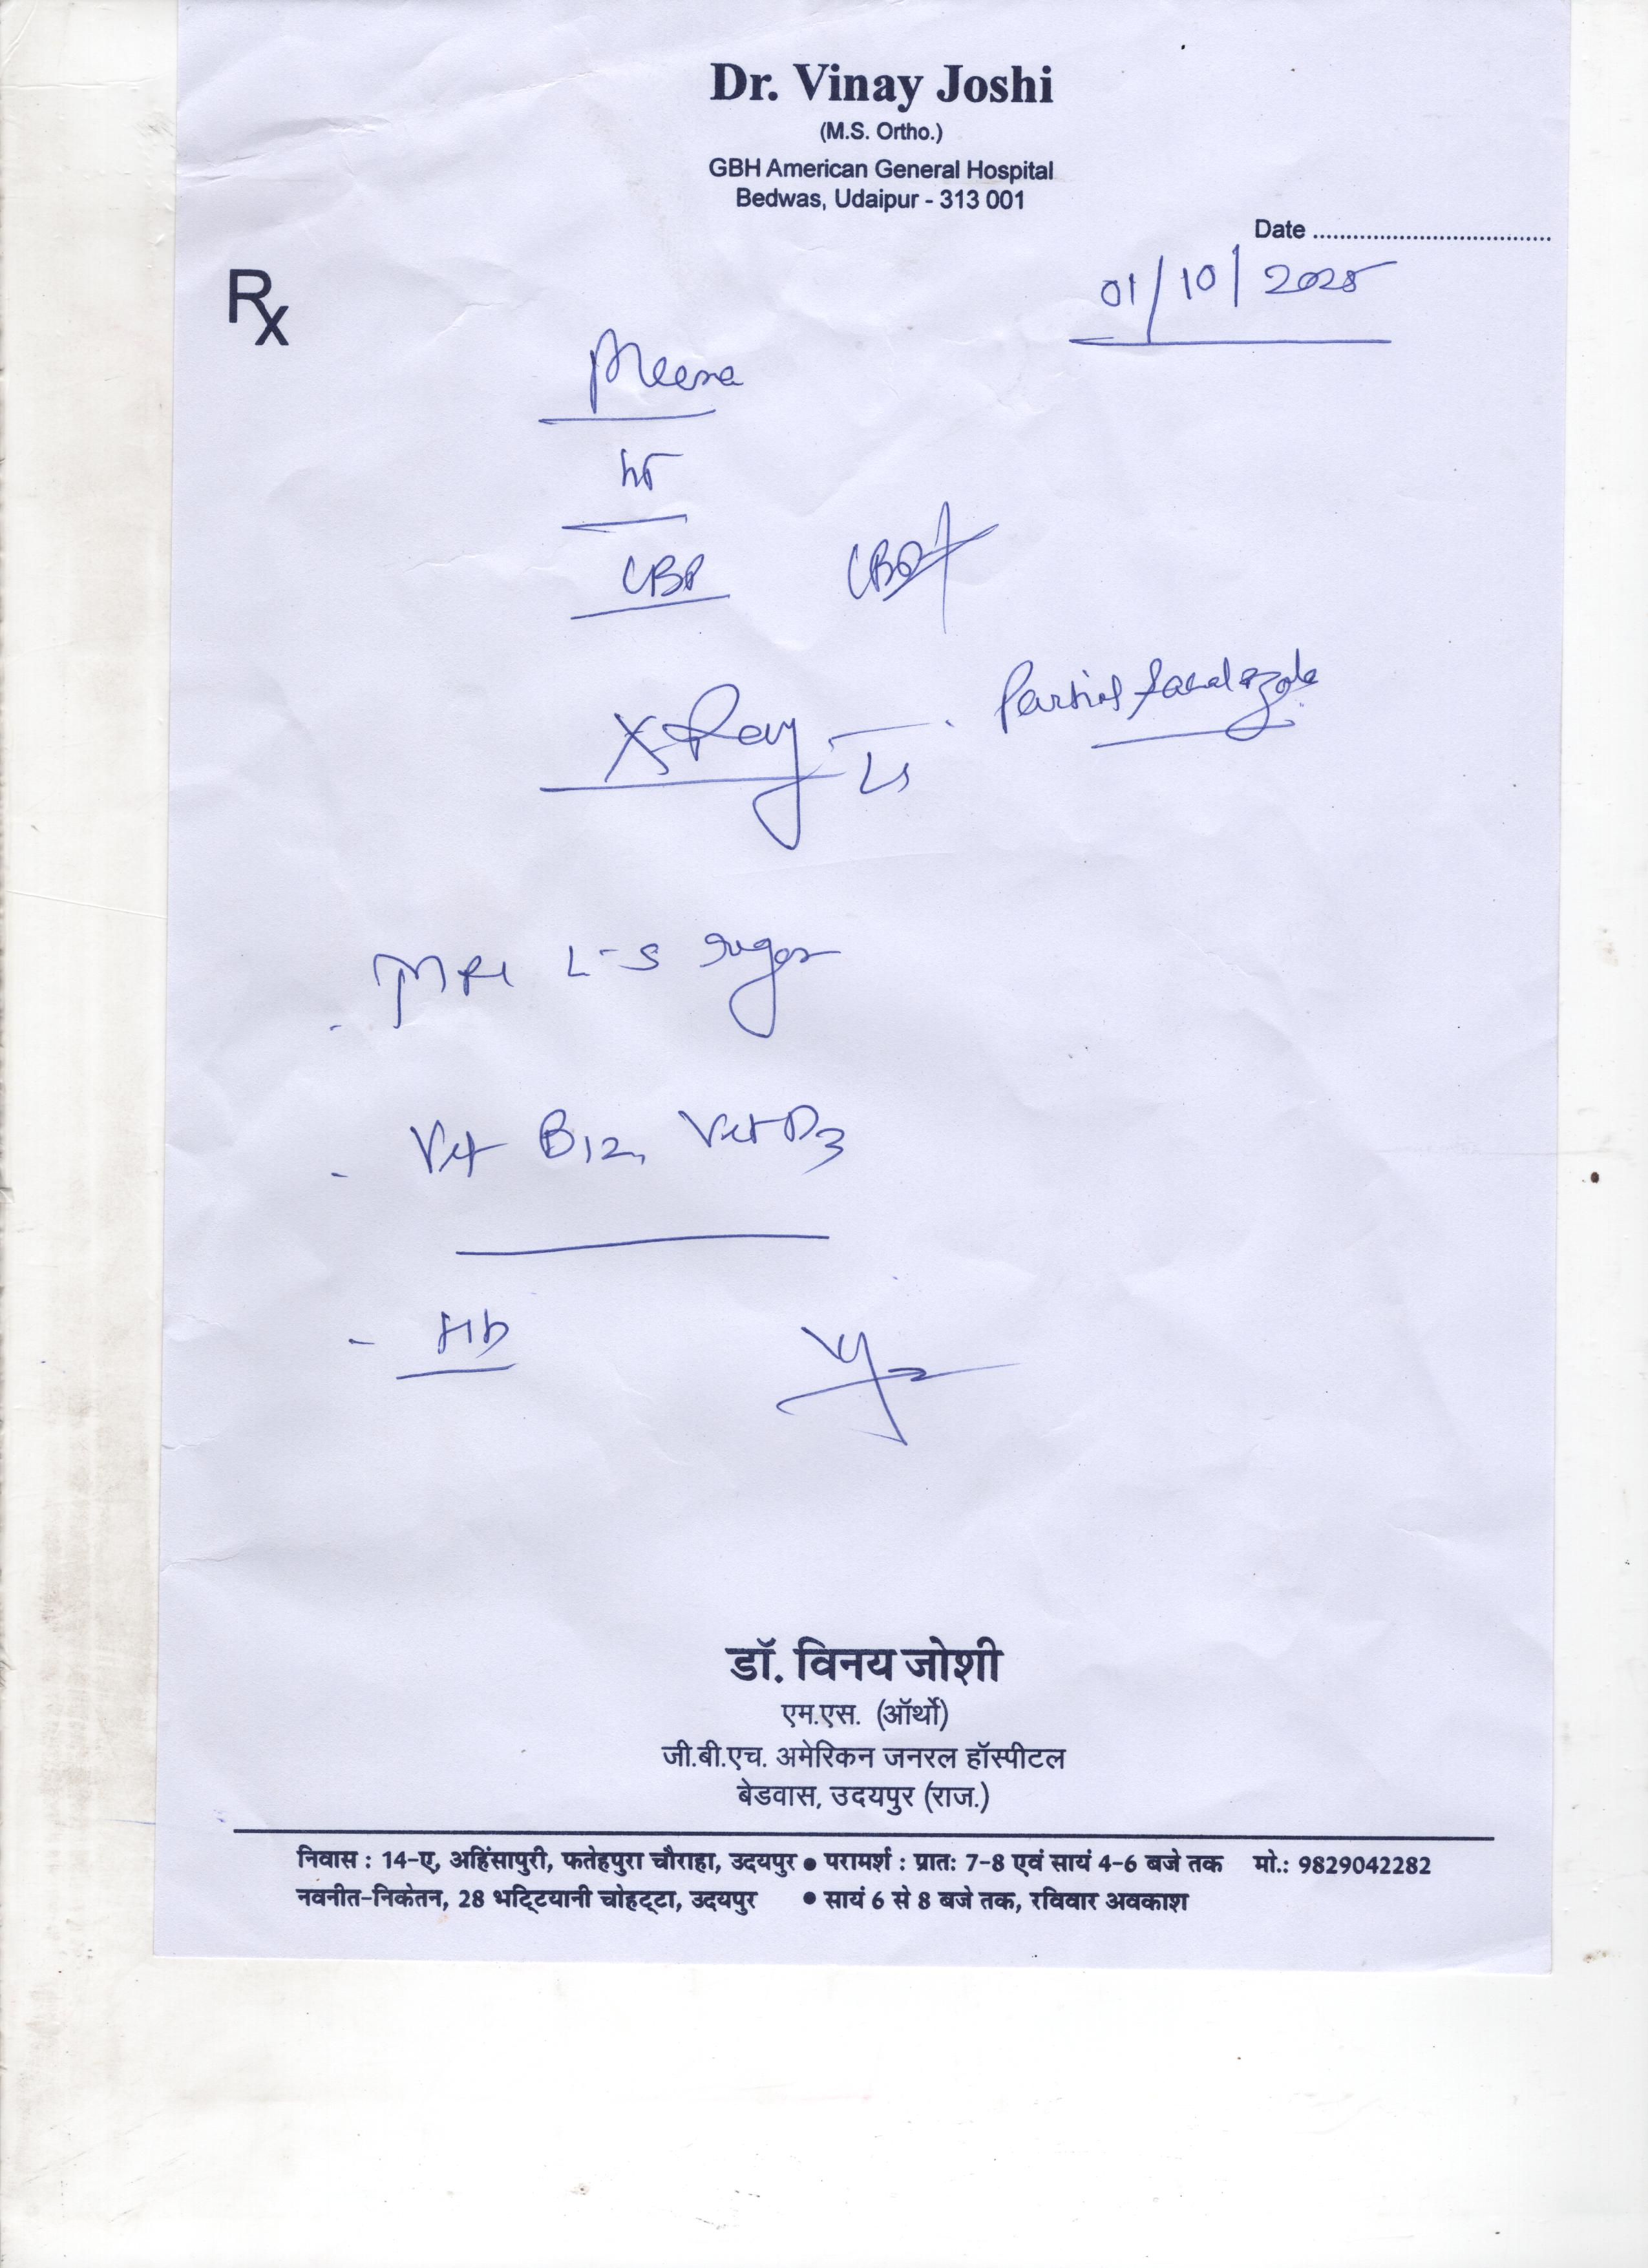 Dr. Vinay Joshi
(M.S. Ortho.)
GBH American General Hospital
Bedwas, Udaipur - 313 001
Date
01/10/2025
Rx
Meena
CBP
X-Ray
LS
Partial
MRI L-S
Vit B12, Vit D3
- Hb
डॉ. विनय जोशी
एम.एस. (ऑर्थो)
जी.बी.एच. अमेरिकन जनरल हॉस्पीटल
बेडवास, उदयपुर (राज.)
निवास : 14-ए, अहिंसापुरी, फतेहपुरा चौराहा, उदयपुर • परामर्श : प्रातः 7-8 एवं सायं 4-6 बजे तक मो.: 9829042282
नवनीत-निकेतन, 28 भट्टियानी चोहट्टा, उदयपुर • सायं 6 से 8 बजे तक, रविवार अवकाश